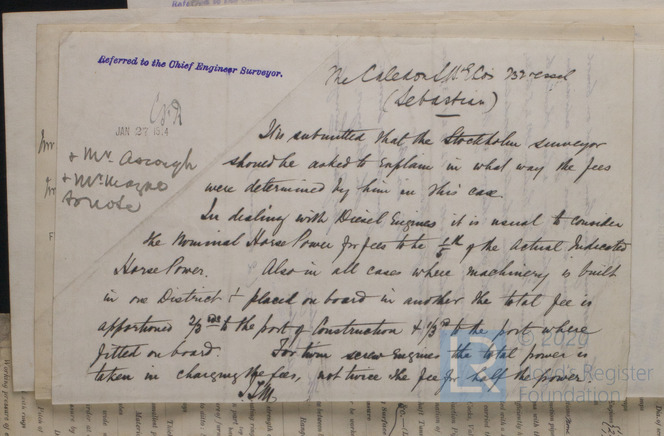 Referred to the Chief Engineer Surveyor.
The Caledon S.B. & E. Co's 732 vessel
(Sebastian)
JAN 27 1914
+ Mr. Ascough
+ Mr. Mayne
to note
It is submitted that the Stockholm surveyor
should be asked to explain in what way the fees
were determined by him in this case.
In dealing with Diesel Engines it is usual to consider
the Nominal Horse Power for fees to be 1/5th of the Actual Indicated
Horse Power. Also in all cases where machinery is built
in one District & placed on board in another the total fee is
apportioned 2/3rds to the port of Construction & 1/3rd to the port where
fitted on board. For twin screw Engines the total power is
taken in charging the fees, not twice the fee for half the power.
© 2020
Lloyd's Register
Foundation